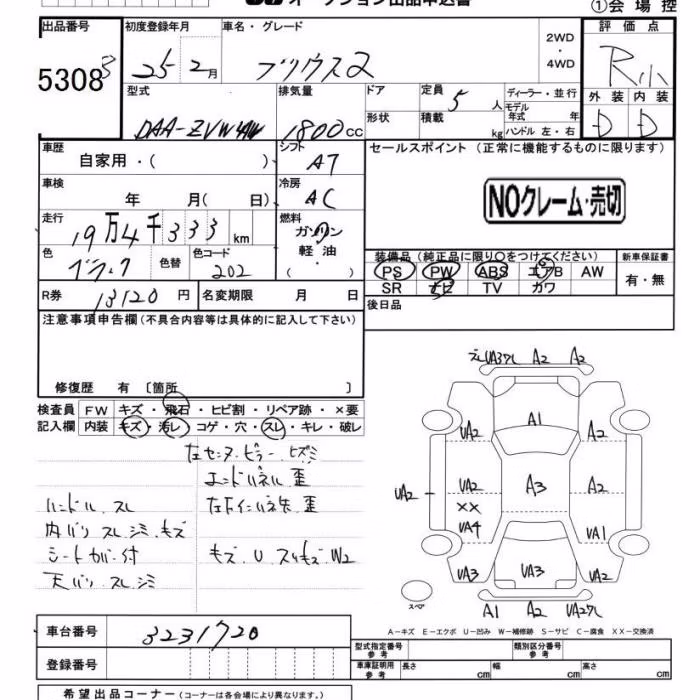 オークション出品申込書
①会場控
出品番号
53083
初度登録年月
25 2月
車名・グレード
プリウス2
2WD
・
4WD
評価点
R小
外装 内装
D D
型式
DAA-ZVW
排気量
1800cc
ドア
形状
定員
5人
積載
kg
ディーラー・並行
モデル年式 年
ハンドル 左・右
車歴
自家用・( )
シフト
AT
セールスポイント (正常に機能するものに限ります)
NOクレーム・売切
車検
年 月( 日)
冷房
AC
走行
19万4千333km
燃料
ガソリン
軽油・
( )
色
ブラック
色替
色コード
202
装備品(純正品に限り○をつけてください)
PS PW ABS エアB AW
SR ナビ TV カワ
新車保証書
有・無
R券
13120円
名変期限 月 日
後日品
注意事項申告欄(不具合内容等は具体的に記入して下さい)
修復歴 有 〔箇所 〕
検査員記入欄
FW キズ・飛石・ヒビ割・リペア跡・×要
内装 キズ・汚レ・コゲ・穴・スレ・キレ・破レ
左センタピラーヒズミ
エンドパネル歪
ハンドルスレ
左Fインパネ先歪
内バリスレシミキズ
シートカバー付
キズ U スリキズ W2
天バリスレシミ
UA37L A2 A2
A1
UA2 A2
UA2 UA2 A3 A2
××
UA4 UA1
UA3 UA3 UA2
スペア
A1 A2 UA27L
A-キズ E-エクボ U-凹み W-補修跡 S-サビ C-腐食 XX-交換済
車台番号
3231720
登録番号
型式指定番号
参考
類別区分番号
参考
車庫証明用
参考
長さ cm 幅 cm 高さ cm
希望出品コーナー(コーナーは各会場により異なります。)